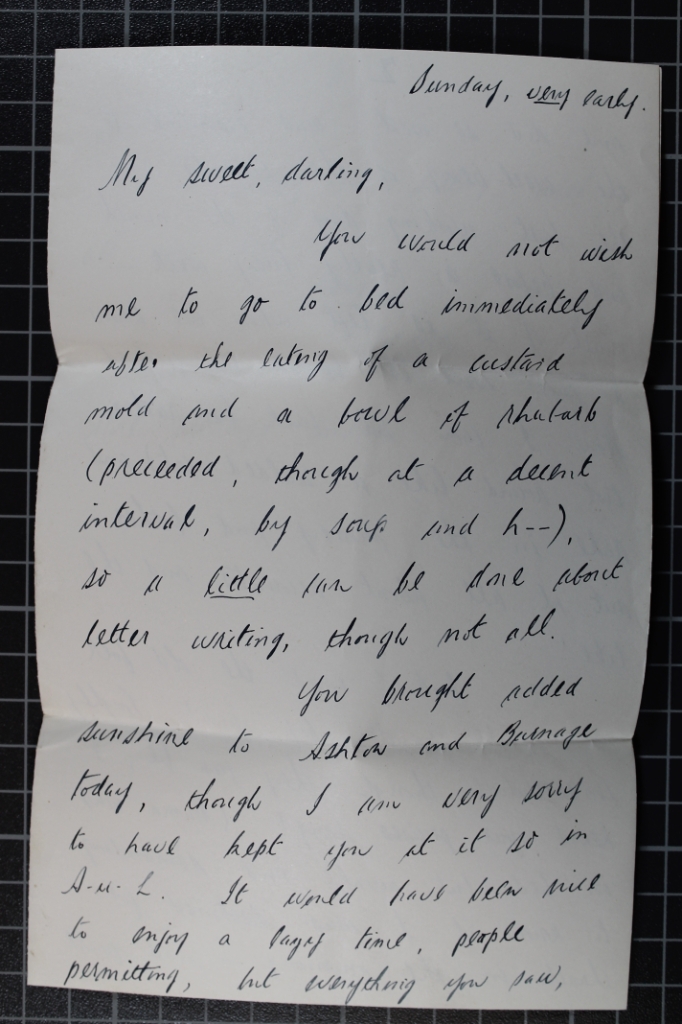 Sunday, very early.
My sweet, darling,
You would not wish
me to go to bed immediately
after the eating of a custard
mold and a bowl of rhubarb
(preceeded, though at a decent
interval, by soup and h--),
so a little can be done about
letter writing, though not all.
You brought added
sunshine to Ashton and Burnage
today, though I am very sorry
to have kept you at it so in
A-u-L. It would have been nice
to enjoy a lazy time, people
permitting, but everything you saw,